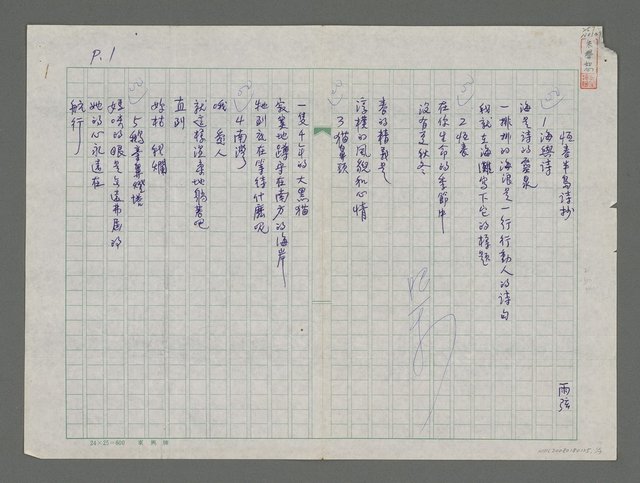 恆春半島詩抄
雨弦
1 海與詩
海是詩的靈泉
一排排的海浪是一行行動人的詩句
我就在海灘寫下它的標題
2 恆春
在你生命的季節中
沒有夏秋冬
春的精義是
淳樸的風貌和心情
3 貓鼻頭
一隻千年的大黑貓
寂寞地蹲守在南方的海岸
牠到底在等待什麼呢
4 南灣
哦 愛人
就這樣溫柔地躺著吧
直到
海枯 石爛
5 鵝鑾鼻燈塔
她的心永遠在
航行
P.1
24×25=600